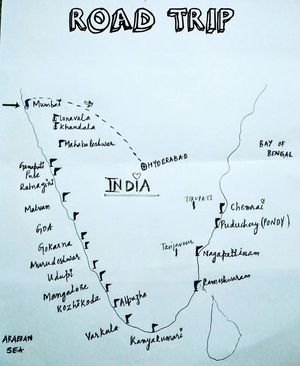 ROAD TRIP
Mumbai
Lonavala
Khandala
Mahabaleshwar
HYDERABAD
INDIA
BAY OF
BENGAL
Ganapati
Pule
Ratnagiri
TIRUPATI
Malvan
Chennai
GOA
Puducherry (PONDY)
Gokarna
Tanjavour
Murudeshwar
Nagapattinam
Udupi
Mangalore
Rameshwaram
Kozhikode
Allpuzha
Varkala
Kanyakumari
ARABIAN
SEA